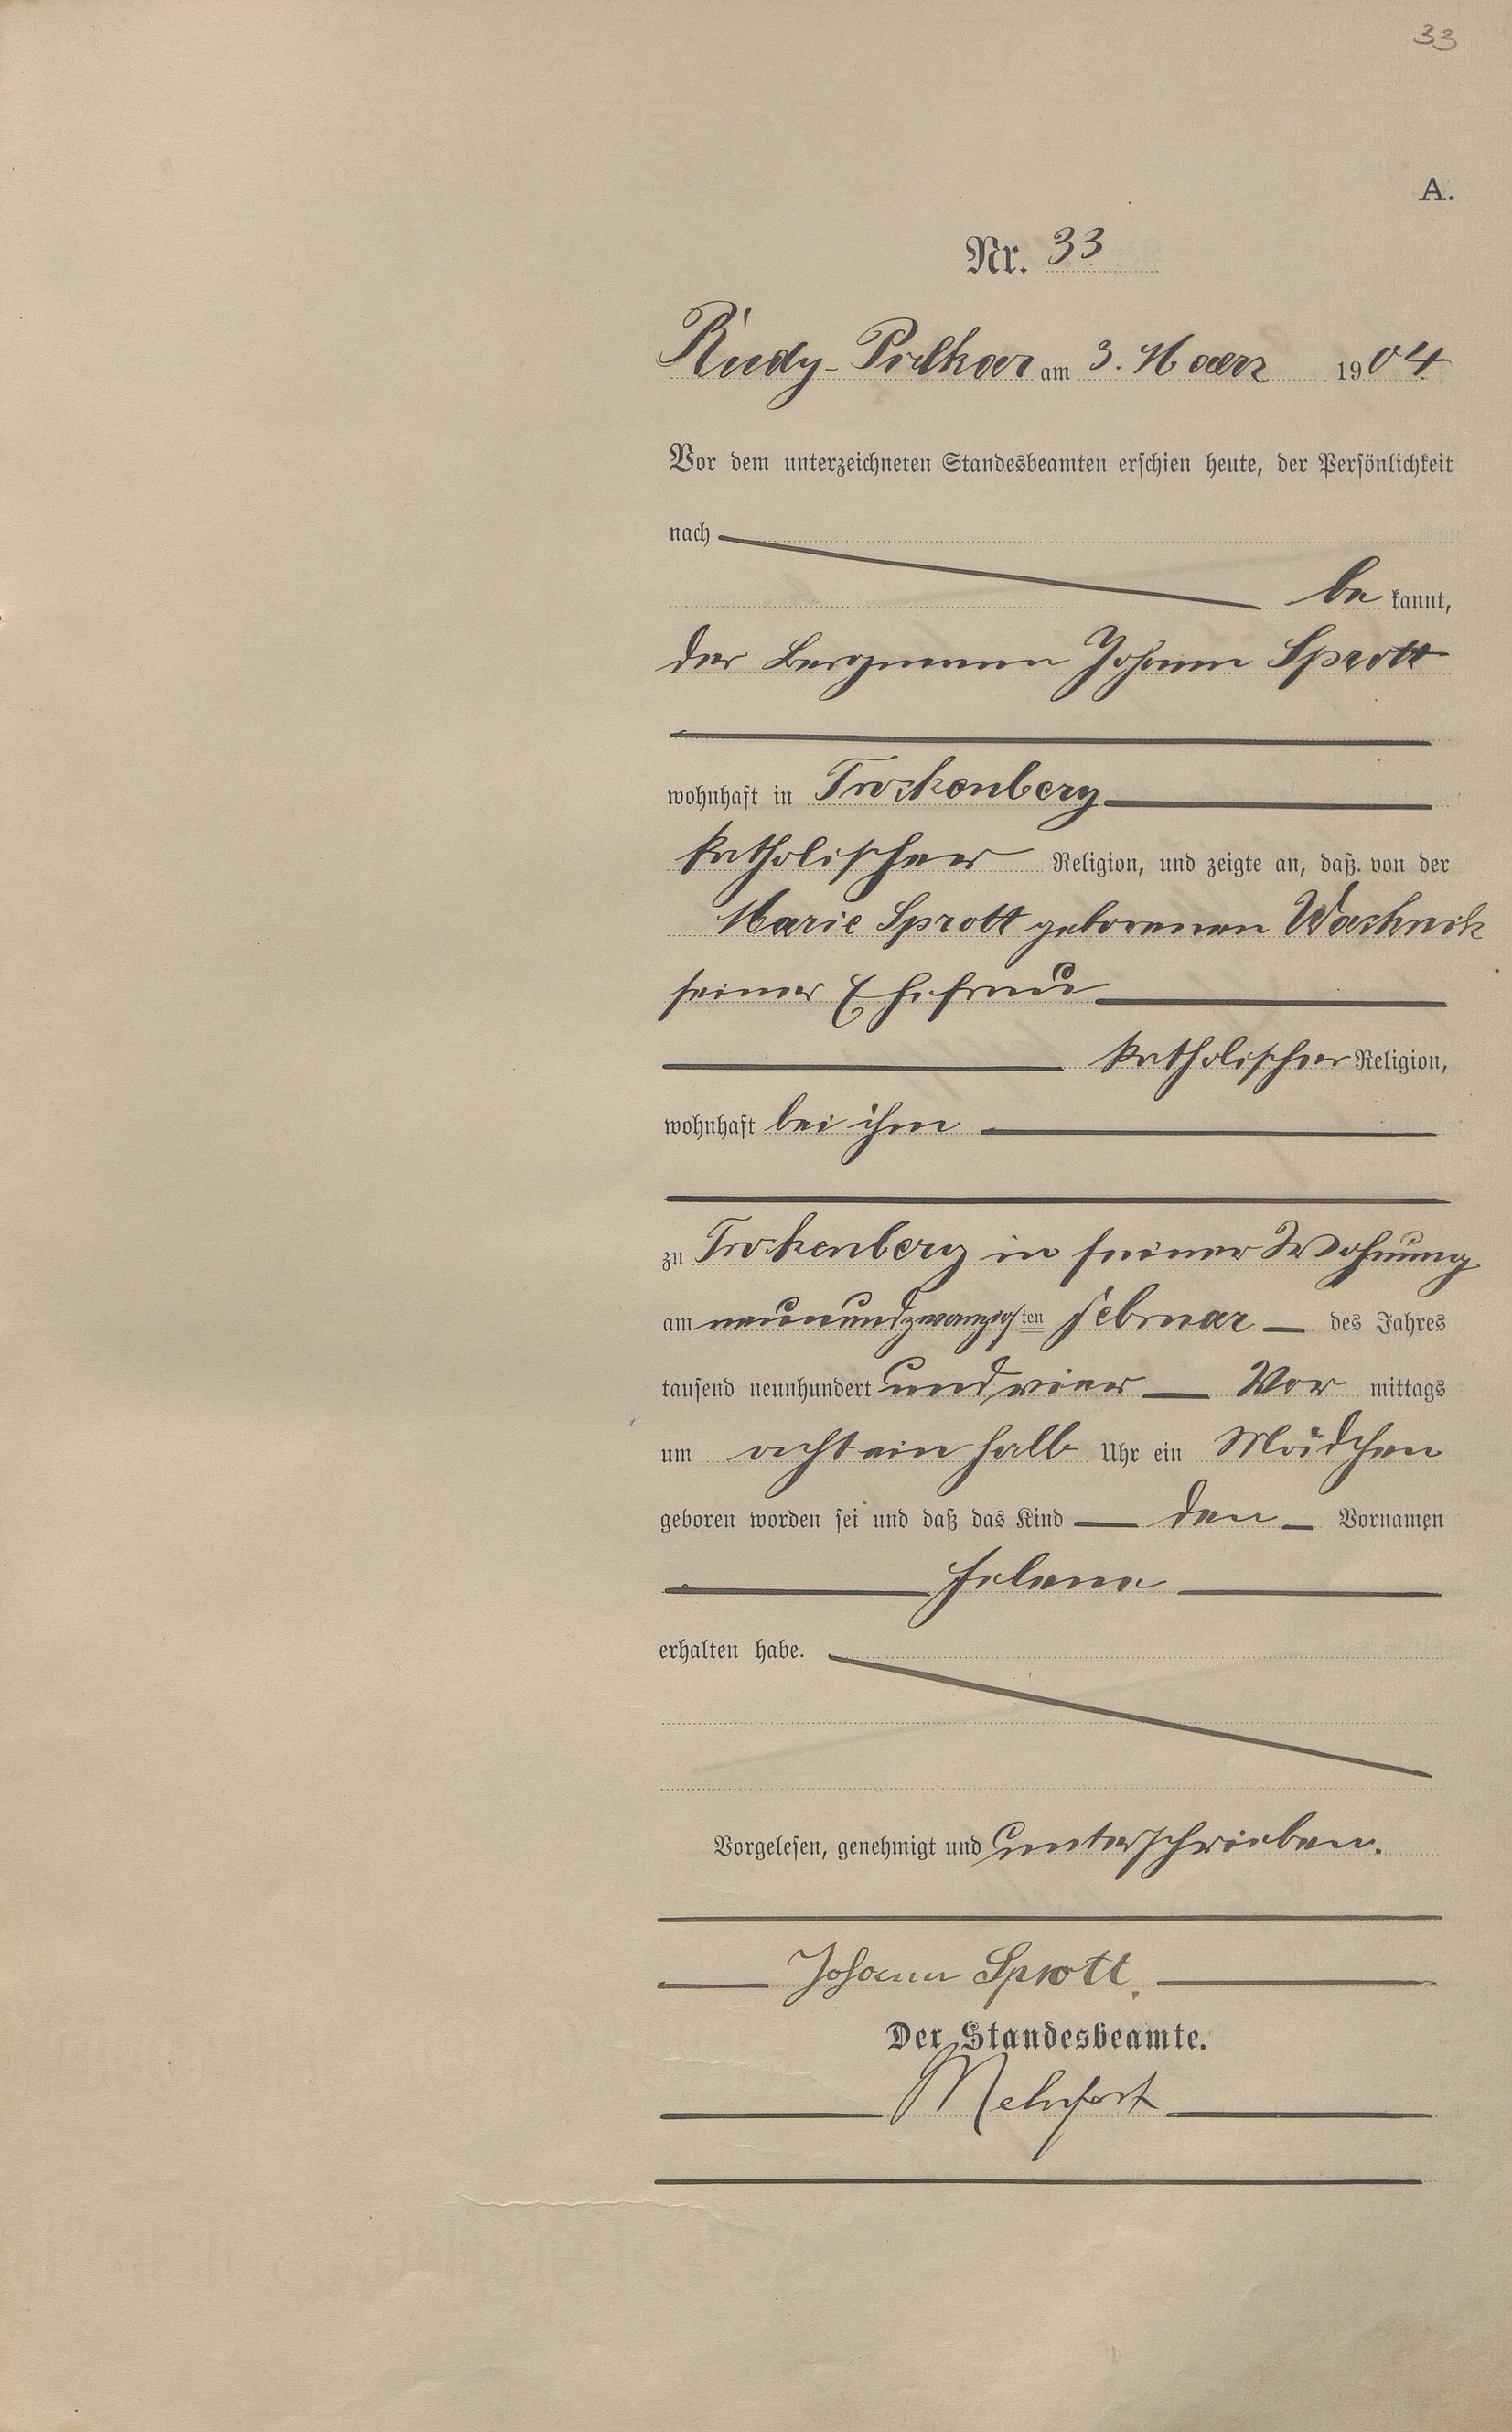 33
A.
Nr. 33
Rudy-Piekar am 3. Maerz 1904
Vor dem unterzeichneten Standesbeamten erschien heute, der Persönlichkeit
nach
be kannt,
der Bergmann Johann Sprott
wohnhaft in Trockenberg
katholischer Religion, und zeigte an, daß von der
Marie Sprott geborenen Wachnik
seiner Ehefrau
katholischer Religion,
wohnhaft bei ihm
zu Trockenberg in seiner Wohnung
am neunundzwanzigsten Februar des Jahres
tausend neunhundert und vier Vor mittags
um acht ein halb Uhr ein Mädchen
geboren worden sei und daß das Kind den Vornamen
Helene
erhalten habe.
Vorgelesen, genehmigt und unterschrieben.
Johann Sprott.
Der Standesbeamte.